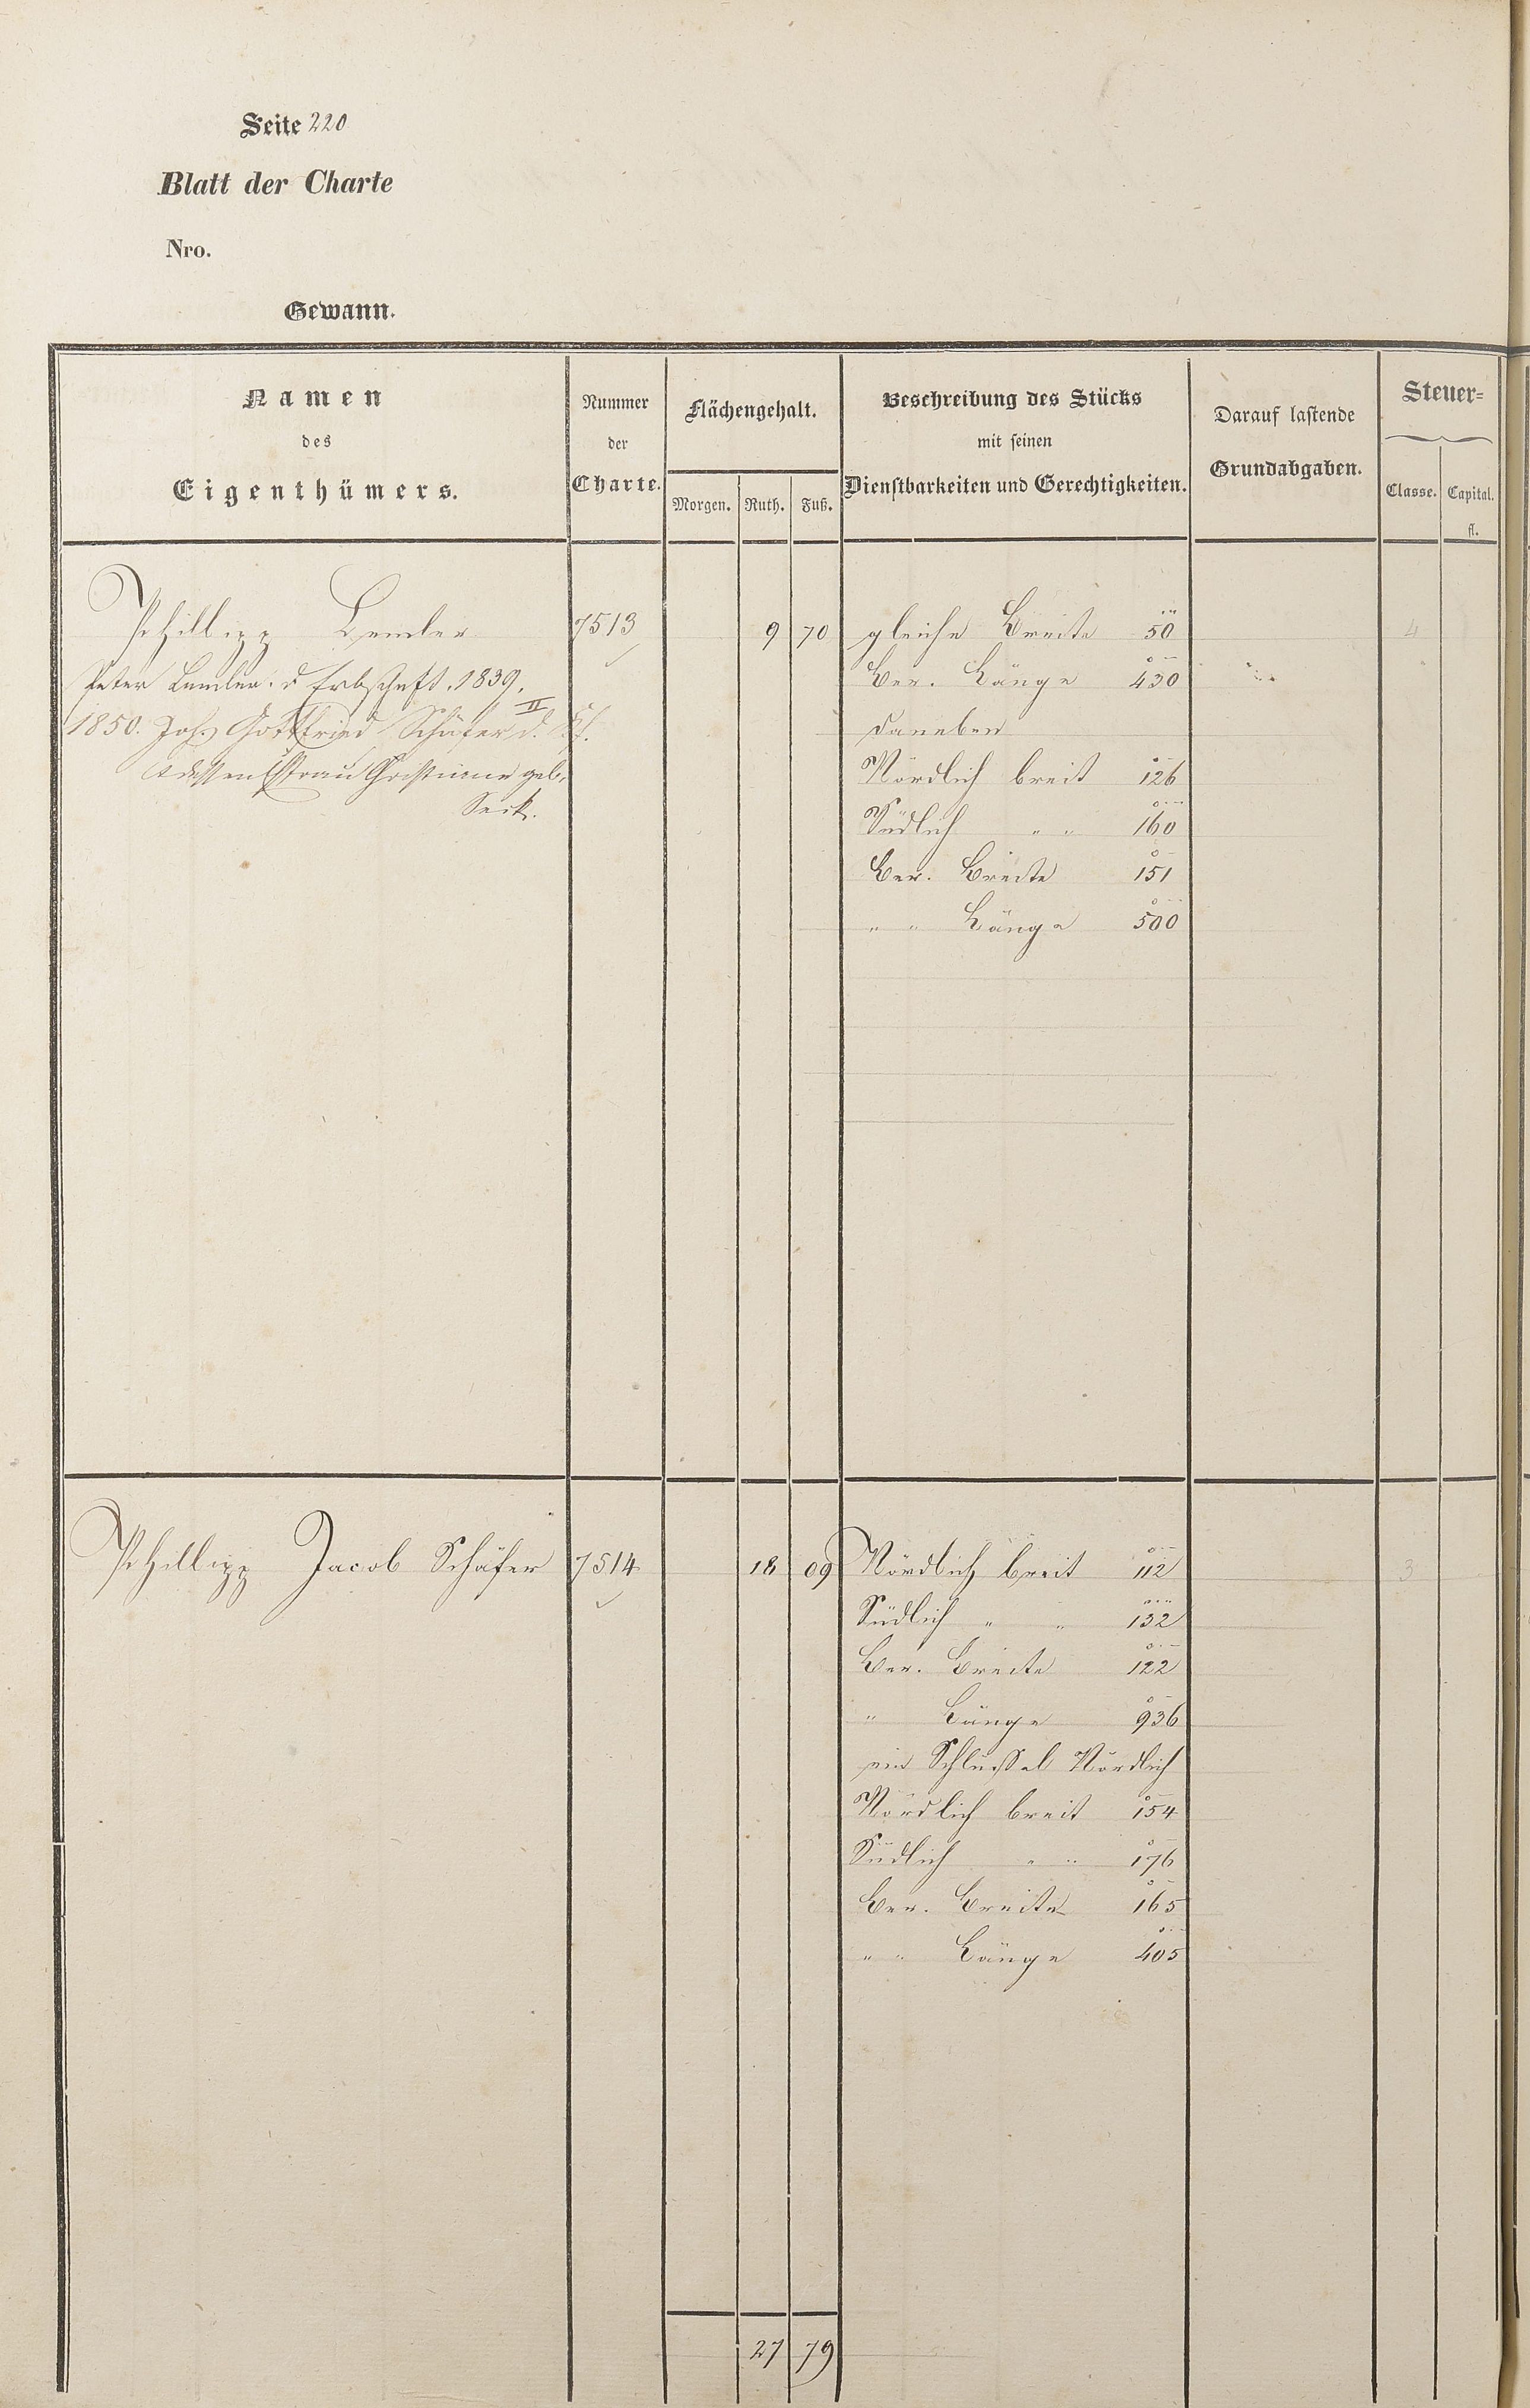 Seite 220
Blatt der Charte
Nro.
Gewann.
Namen
des
Eigenthümers.
Nummer
der
Charte.
Flächengehalt.
Morgen. Ruth. Fuß.
Beschreibung des Stücks
mit seinen
Dienstbarkeiten und Gerechtigkeiten.
Darauf lastende
Grundabgaben.
Steuer=
Classe. Capital.
fl.
Phillipp Lemler 7513 9 70 gleiche Breite 50 4
Peter Lemler. d Erbschaft. 1839. Ber. Länge 430
1850. Joh. Gottfried Schäfer II d. Kf. daneben
& dessen Ehfrau Christiane geb. Nördlich breit 126
Seck. Südlich " " 160
Ber. Breite 151
" " Länge 500
Phillipp Jacob Schäfer 7514 18 09 Nördlich breit 112 3
Südlich " " 132
Ber. Breite 122
" Länge 936
ein Schlüssel Nördlich
Nördlich breit 154
Südlich " " 176
Ber. Breite 165
" " Länge 405
27 79